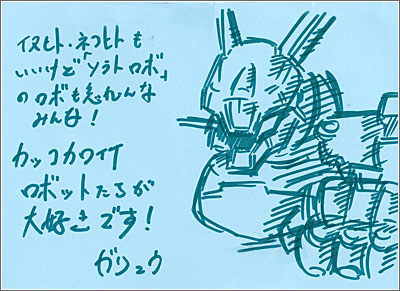 イヌヒト・ネコヒトも
いいけど「ソラトロボ」
のロボも忘れんな
みんな！
カッコカワイイ
ロボットたちが
大好きです！
ガリュウ